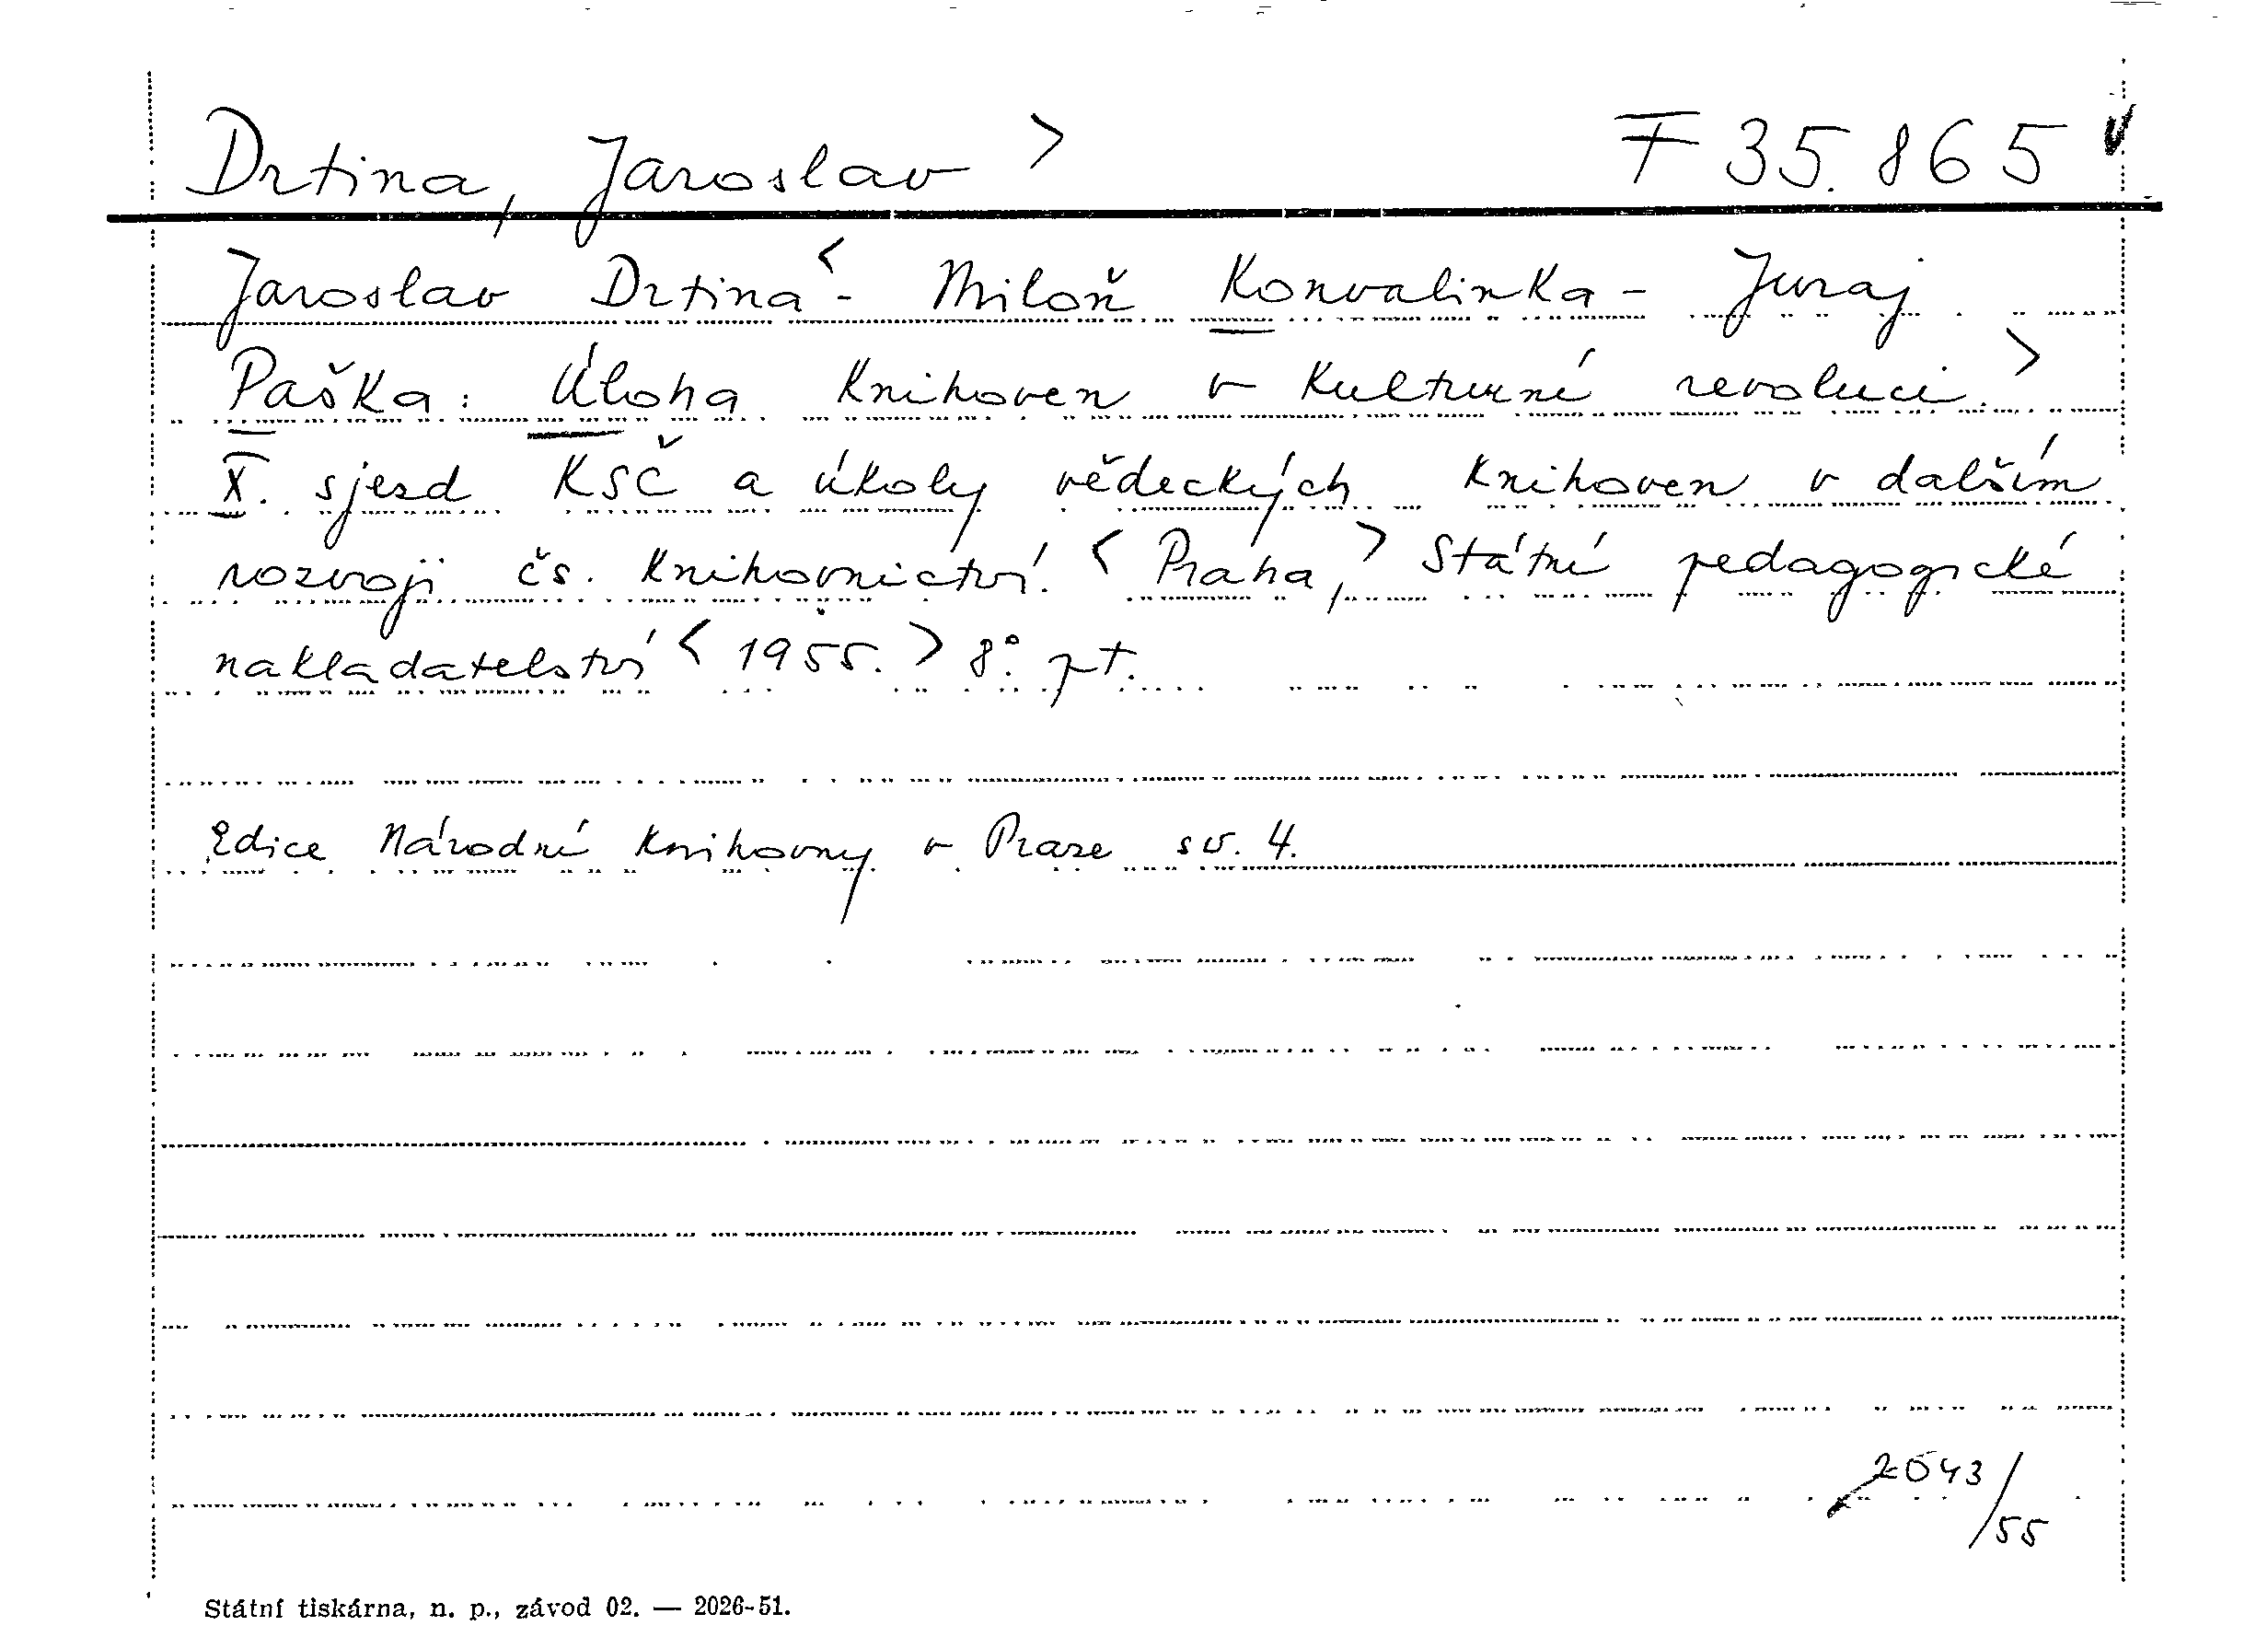 Drtina, Jaroslav > F 35.865
Jaroslav Drtina < - Miloň Konvalinka - Juraj
Paška: Úloha knihoven v kulturní revoluci. >
X. sjezd KSČ a úkoly vědeckých knihoven v dalším
rozvoji čs. knihovnictví. < Praha, > Státní pedagogické
nakladatelství < 1955. > 8°. pt.
Edice Národní knihovny v Praze sv. 4.
2043/55
Státní tiskárna, n. p., závod 02. — 2026-51.